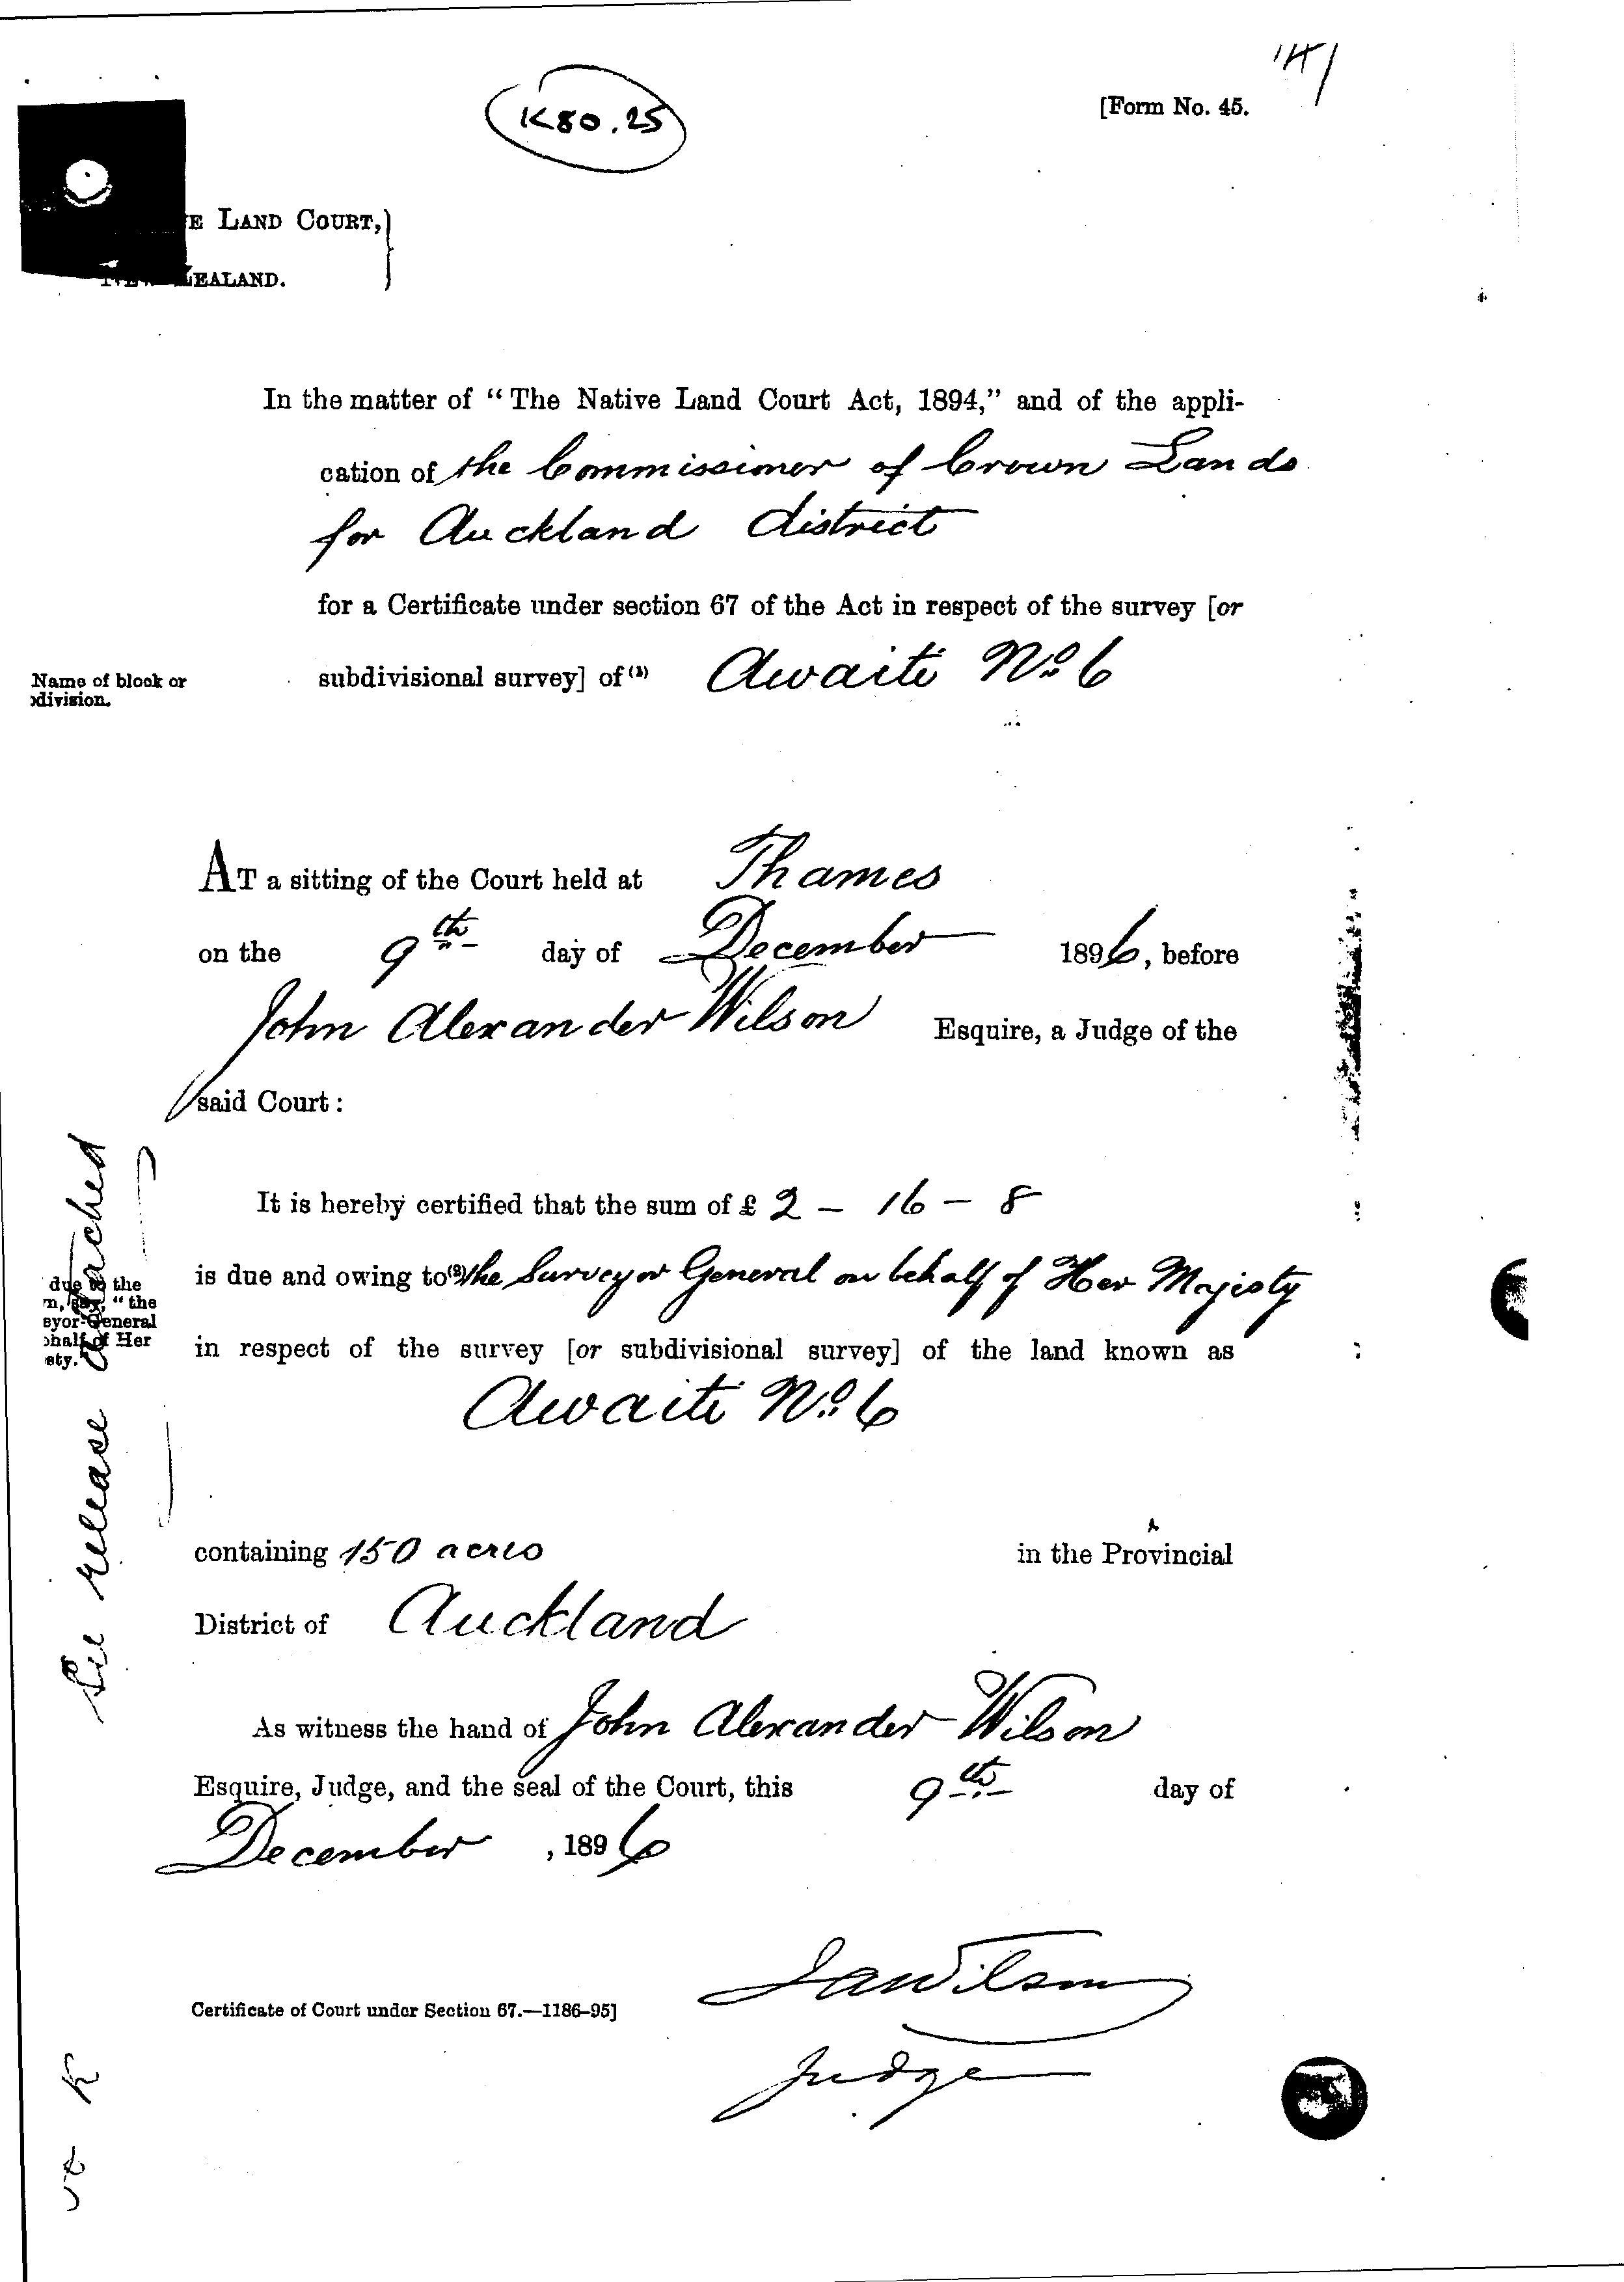 K80.25
[Form No. 45.
E LAND COURT,
ZEALAND.
In the matter of "The Native Land Court Act, 1894," and of the appli-
cation of the Commissioner of Crown Lands
for Auckland district
for a Certificate under section 67 of the Act in respect of the survey [or
Name of block or
division.
subdivisional survey] of (1) Awaiti No. 6
AT a sitting of the Court held at Thames
on the 9th day of December 1896, before
John Alexander Wilson Esquire, a Judge of the
said Court:
It is hereby certified that the sum of £ 2 – 16 – 8
is due and owing to (2) the Surveyor General on behalf of Her Majesty
due to the
"the
eyor-General
half of Her
sty."
in respect of the survey [or subdivisional survey] of the land known as
Awaiti No. 6
containing 150 acres in the Provincial
District of Auckland
See release attached
As witness the hand of John Alexander Wilson
Esquire, Judge, and the seal of the Court, this 9th day of
December , 1896
JAWilson
Certificate of Court under Section 67.—1186–95]
Judge